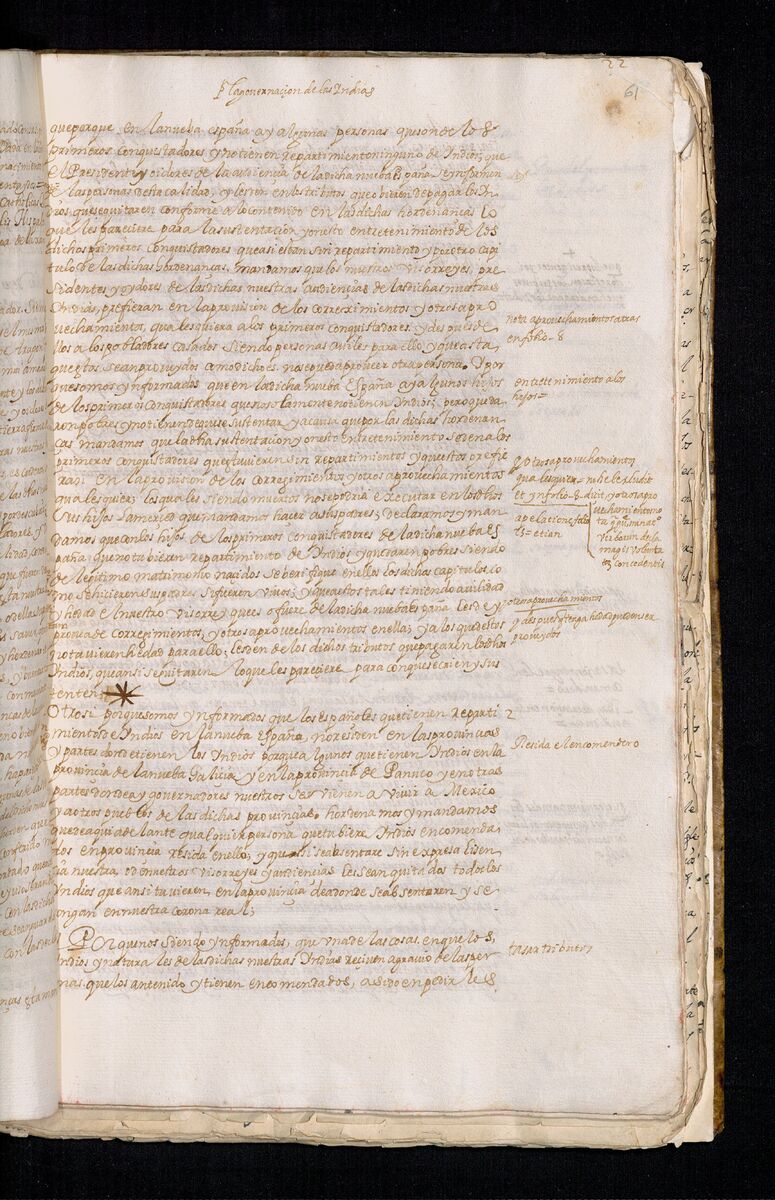 22
61
Pa la gouernaçion de las Yndias
que porque, en la nueba españa ay algunas personas que son de los
primeros conquistadores y no tienen repartimiento ninguno de Yndios, que
el Presidente y oidores de la audiencia de la dicha nueba España, se ynformen
de las personas desta calidad, y les den en los tributos que obieren de pagar los Yn
dios que se quitaren conforme a lo contenido en las dichas hordenanças lo
que les pareciere para la sustentaçion y onesto entretenimiento de los
dichos primeros conquistadores que asi estan sin repartimiento y por otro capi
tulo de las dichas hordenanças, mandamos que los nuestros visorreyes, pre
sidentes y oydores de las dichas nuestras audiencias de las dichas nuestras
Yndias, prefieran en la provision de los correximientos y otros apro
uechamientos, qualesquiera a los primeros conquistadores y despues de
llos a los pobladores casados siendo personas auiles para ello, y que asta
que estos sean proueydos como dicho es, no se pueda proueer otra persona. Y por
que somos ynformados que en la dicha nueba España ay algunos hijos
de los primeros conquistadores que no solamente no tienen Yndios, pero queda
ron pobres y no tienen de que se sustentar, y a causa que por las dichas hordenan
ças mandamos que la dicha sustentaçion y onesto entretenimiento se de a los
primeros conquistadores que estuvieren sin repartimientos y questos prefie
ran en la prouision de los correximientos y otros aprouechamientos
qualesquier, los quales siendo muertos no se podria executar en los dichos
sus hijos la merced que mandamos hacer a sus padres; Declaramos y man
damos que con los hijos de los primeros conquistadores de la dicha nueba es
paña que no tubieren repartimiento de Yndios y quedaren pobres siendo
de legitimo matrimonio naçidos se berifique en ellos los dichos capitulos co
mo se hiciera en sus padres si fueren viuos; y que a estos tales tiniendo auilidad
y hedad el nuestro visorrey ques o fuere de la dicha nueba españa les de y
prouea de correximientos, y otros aprouechamientos en ella; y a los que destos
no tuvieren hedad para ello; les den de los dichos tributos que pagaren los dichos
Yndios, que ansi se quitaren lo que les pareçiere para con que se crien y sus
tenten;
Otrosi porque somos ynformados que los españoles que tienen reparti
mientos de Yndios en la nueba España, no residen en las prouincias
y partes donde tienen los Yndios porque algunos que tienen Yndios en la
prouinçia de la nueba Galicia y en la prouincia de Panuco y en otras
partes donde ay gouernadores nuestros se vienen a viuir a Mexico
y a otros pueblos de las dichas prouinçias. hordenamos y mandamos
que de aqui adelante qualquier persona que tubiere Yndios encomenda
dos en prouincia resida en ella; y que si se absentare sin expresa lisen
cia nuestra, o de nuestros visorreyes y audiencias les sean quitados todos los
Yndios que ansi tuvieren en la prouinçia de a donde se absentaren y se
pongan en nuestra corona real;
Porque nos siendo ynformados, que vna de las cosas en que los
Yndios y naturales de las dichas nuestras Yndias reciuen agrauio de las per
nas que los an tenido y tienen encomendados, a sido en pedirles
nota aprouechamientos atras
en folio - 8
entretenimiento a los
hijos =
Y otros aprouechamientos
qualesquier
otros aprouechamientos
y despues q tenga hedad pueden ser
proueydos
2
Resida el encomendero
tasar tributos